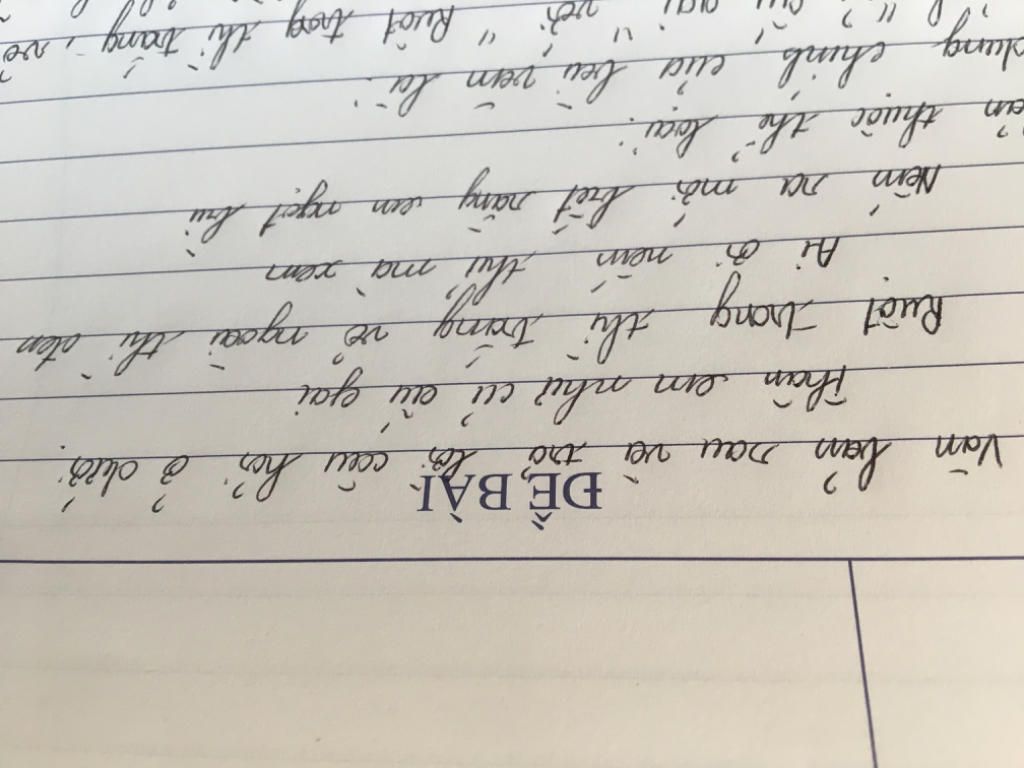 ĐỀ BÀI
Văn bản sau và trả lời câu hỏi ở dưới:
Thân em như củ ấu gai
Ruột trong thì trắng vỏ ngoài thì đen
Ai ơi nếm thử mà xem
Nếm ra mới biết rằng em ngọt bùi
thuộc thể loại:
dung chính của bài văn là:
Ruột trong thì trắng, vỏ